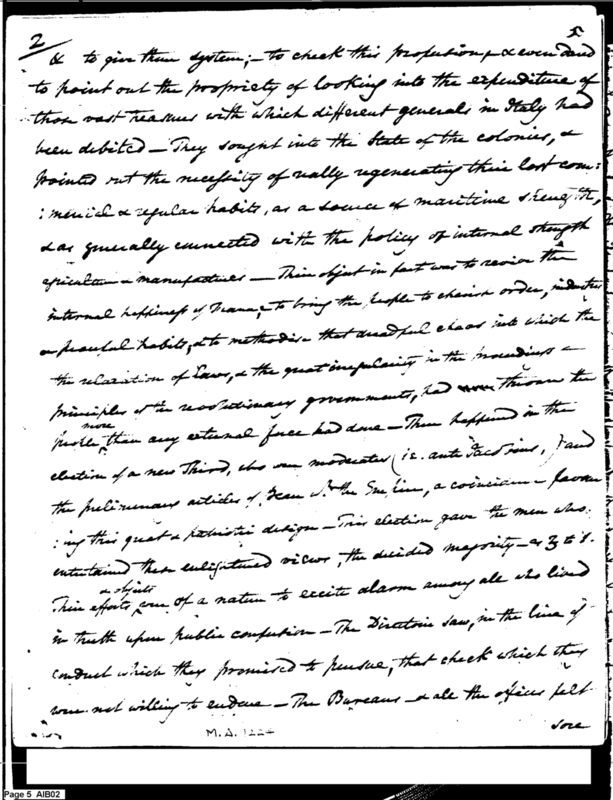 2 5
& to give them system; – to check this profusion, & even dared
to point out the propriety of looking into the expenditure of
those vast treasures with which different generals in Italy had
been debited – They sought into the State of the colonies, &
pointed out the necessity of really regenerating their lost com:
:mercial & regular habits, as a source of maritime strength,
& as generally connected with the policy of internal strength
agriculture & manufactures – Their object in fact was to revive the
internal happiness of France, to bring the people to cherish order, industry
& peaceful habits, & to methodise that dreadful chaos into which the
the relaxation of Laws, & the great irregularity in the proceedings &
principles of the revolutionary governments, had thrown the
more
people than any external force had done – There happened in the
election of a new Third, who were moderates (i.e. anti Jacobins,) and
the preliminary articles of Peace wh. the Empire, a coincidence favour
:ing this great & patriotic design – This election gave the men who
entertained these enlightened views, the decided majority – as 3 to 1.
& objects
Their efforts were of a nature to excite alarm among all who lived
in truth upon public confusion – The Directoire saw, in the line of
conduct which they promised to pursue, that check which they
were not willing to endure – The Bureaus – & all the offices felt
sore
M.A. 1224
Page 5 AIB02